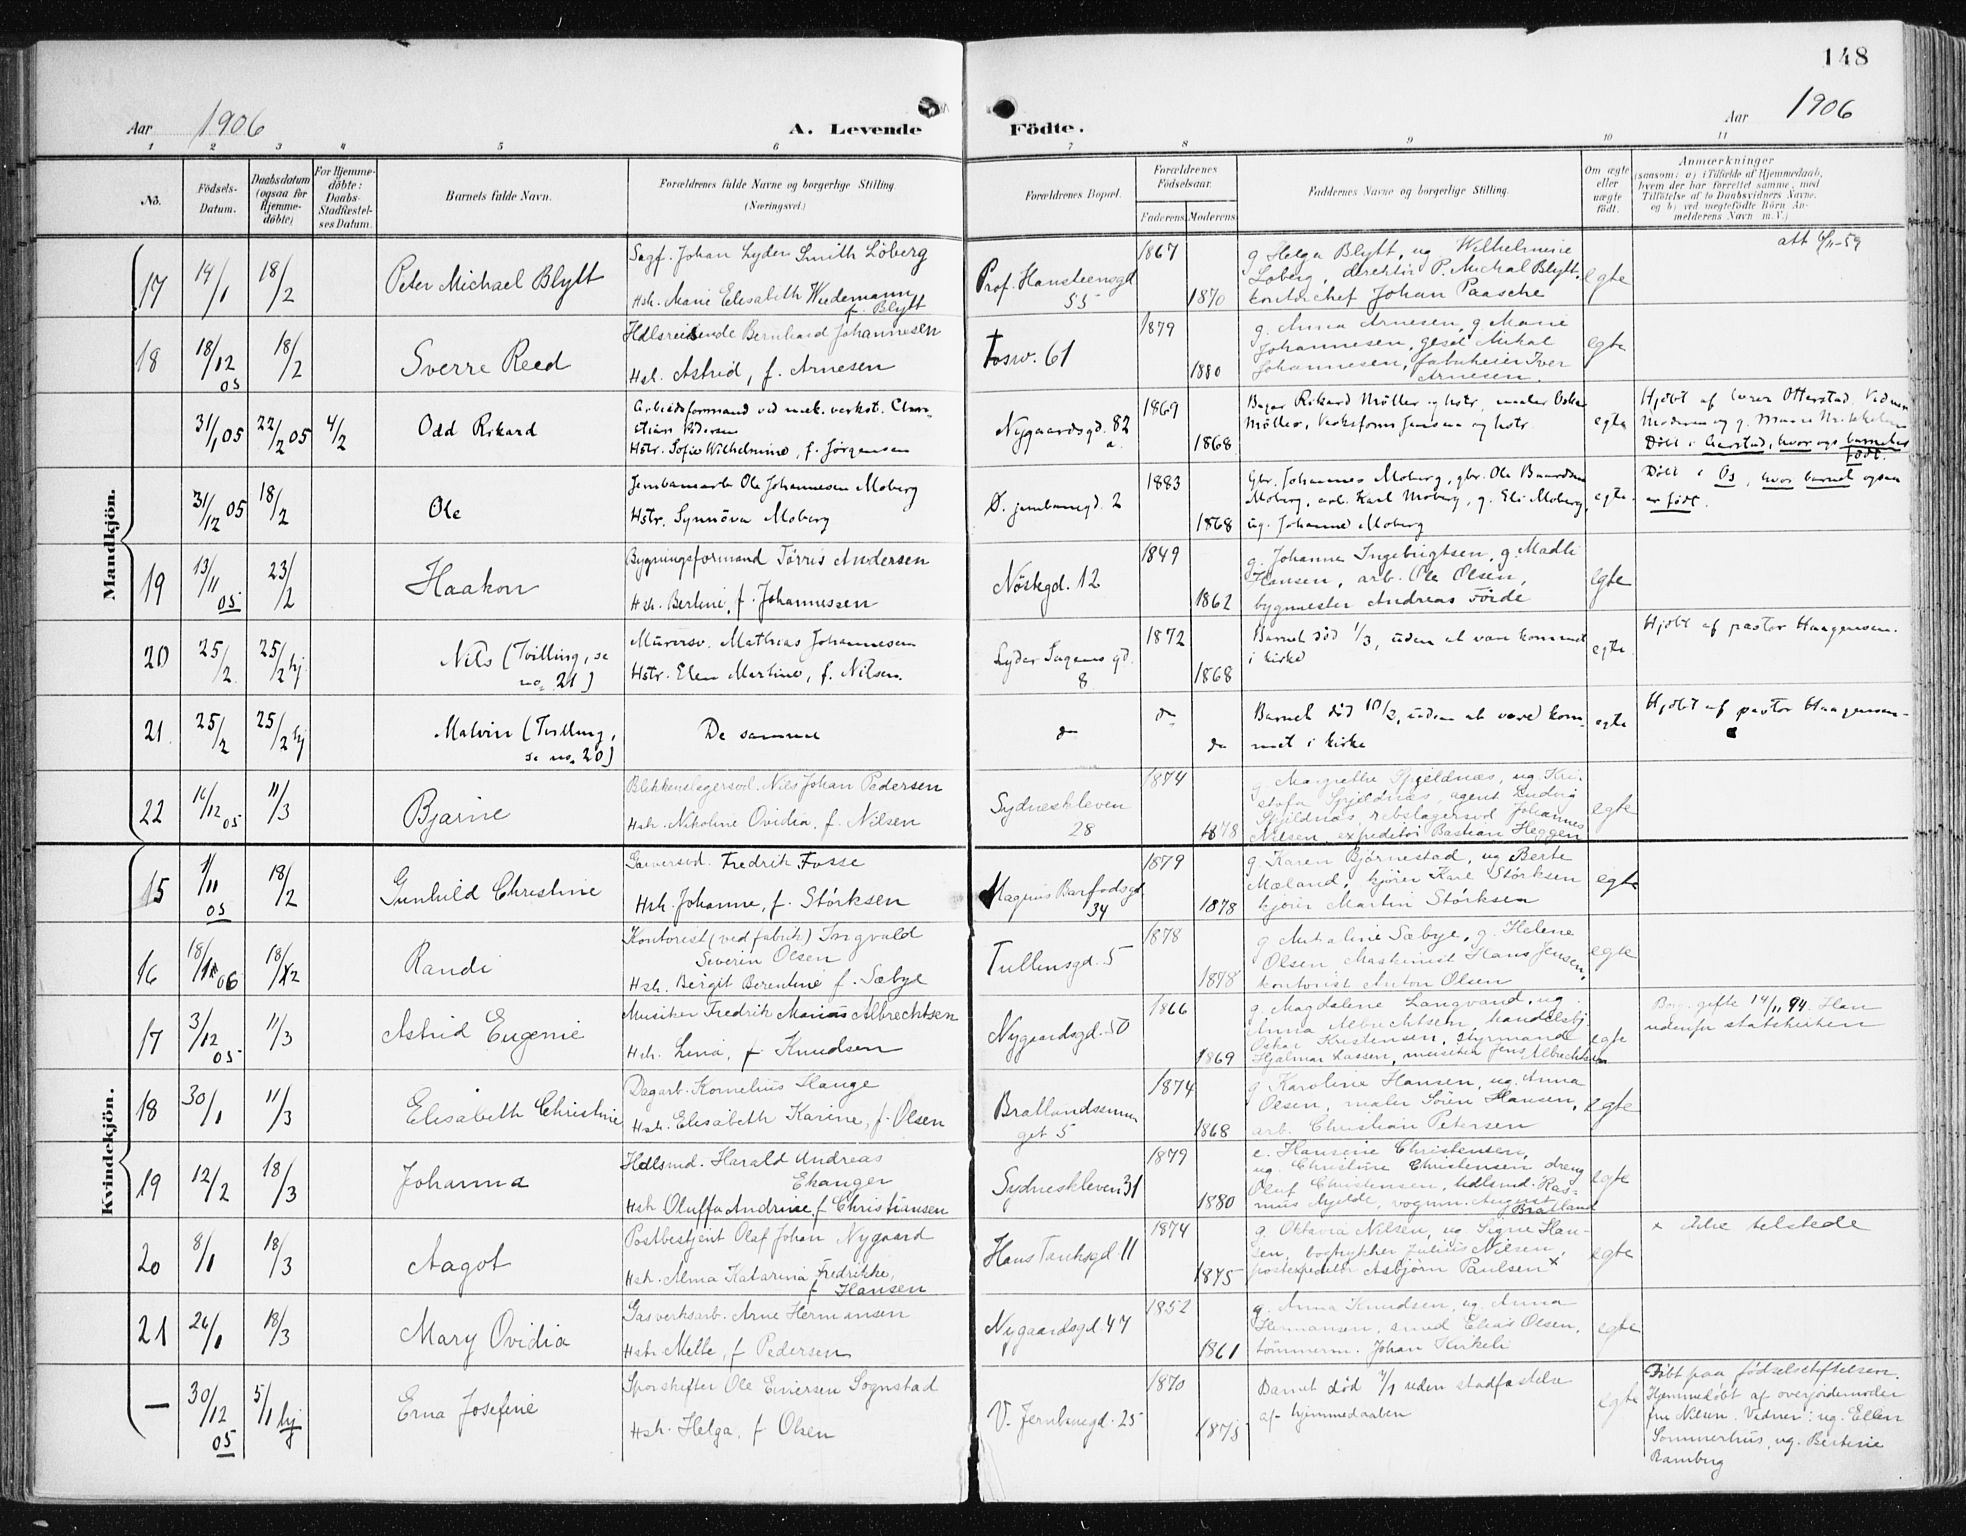 148
Aar 1906
A. Levende
Födte.
Aar 1906
1 2 3 4 5 6 7 8 9 10 11
No.
Födsels-Datum.
Daabsdatum (ogsaa for Hjemmedöbte)
For Hjemmedöbte: Daabs-Stadfæstelses Datum.
Barnets fulde Navn.
Forældrenes fulde Navne og borgerlige Stilling. (Næringsvei.)
Forældrenes Bopæl.
Forældrenes Födselsaar.
Faderens Moderens
Faddernes Navne og borgerlige Stilling.
Om ægte eller uægte födt.
Anmærkninger
(saasom: a) i Tilfælde af Hjemmedaab, hvem der har forrettet samme, med Tilföielse af to Daabsvidners Navne, og b) ved uægtefödte Börn Anmelderens Navn m. V.)
Mandkjön.
17 14/1 18/2 Peter Michael Blytt
Sagf. Johan Lyder Smith Löberg
Hst. Marie Elisabeth Wiedemann f. Blytt
Prof. Hansteensgd 55
1867 1870
g. Helga Blytt, ug. Wilhelmine
Löberg, direktör P. Michal Blytt,
kontorchef Johan Paasche
egte
18 18/12 05 18/2 Sverre Reed
Hdlsreisende Bernhard Johannesen
Hst. Astrid, f. Arnesen
Fosw. 61
1879 1880
g. Anna Arnesen, g. Marie
Johannesen, gesel Mikal
Johannesen, fabrikeier Iver
Arnesen.
egte
31/1 05 22/2 05 4/2 Odd Rikard
Arbeidsformand ved mek. verkst. Christian Pedersen
Hstr. Sofie Wilhelmine, f. Jörgensen
Nygaardsgd. 82 a.
1869 1868
Bager Rikard Möller og hstr, maler Oskar
Möller, Jensen og hstr.
egte
Hjdbt af lærer Otterstad. Vidner
Moderen og g. Marie
Döbt i Gjerstad, hvor ogs barnet er
födt.
31/12 05 18/2 Ole
Jernbanearb Ole Johannesen Moberg
Hstr. Synnöva Moberg
Ö. jernbanegd. 2
1883 1868
Gbr. Johannes Moberg, gbr. Ole Baardsen
Moberg, arb. Karl Moberg, g. Eli Moberg,
ug. Johanne Moberg
egte
Döbt i Os, hvor barnet ogsaa
er födt.
19 13/11 05 23/2 Haakon
Bygningsformand Törris Andersen
Hst. Bertine, f. Johannessen
Nöstegd. 12
1849 1862
g. Johanne Ingebrigtsen, g. Madli
Hansen, arb. Ole Olsen,
bygmester Andreas Förde
egte
20 25/2 25/2 hj Nils (Tvilling, se no. 21)
Murersv. Mathias Johannesen
Hstr. Elen Martine, f. Nilsen.
Lyder Sagens gd. 8
1872 1868
Barnet död 1/3, uden at vare kommet
i kirke
egte
Hjdbt af pastor Haagensen.
21 25/2 25/2 hj Malvin (Tvilling, se no. 20)
De samme
do do do
Barnet död 10/3, uden at være kommet i kirke
egte
Hjdbt af pastor Haagensen.
22 16/12 05 11/3 Bjarne
Blikkenslagersvd. Nils Johan Pedersen
Hst. Nikoline Ovidia, f. Nilsen
Sydneskleven 28
1874 1878
g. Margrethe Spjeldnæs, ug. Kristofa Spjeldnæs, agent Ludvig
Spjeldnæs, rebslagersvd Johannes
Nilsen, expeditör Bastian Heggen
egte
Kvindekjön.
15 1/11 05 18/2 Gunhild Christine
Garversvd. Fredrik Fosse
Hst. Johanne, f. Störksen
Magnus Barfodsgd 34
1879 1878
g. Karen Bjørnestad, ug Berte
Mæland, kjører Karl Störksen
kjører Martin Störksen
egte
16 18/1 06 18/2 Randi
Kontorist (ved fabrik) Ingvald
Severin Olsen
Hst. Birgit Berentine f. Sæbye
Tullinsgd. 5
1878 1878
g. Sæbye, g. Helene
Olsen Maskinist Hans Jensen,
kontorist Anton Olsen
egte
17 3/12 05 11/3 Astrid Eugenie
Musiker Fredrik Marius Albrechtsen
Hst. Lina, f. Knudsen
Nygaardsgd. 50
1866 1869
g. Magdalene Langvand, ug
Anna Albrechtsen, handelsbj.
Oskar Kristensen, styrmand
Hjalmar Lassen, musiker Jens Albrechtsen
egte
Borg. gifte 14/11 94. Han
udenfor statskirken
18 30/1 11/3 Elisabeth Christine
Dagarb. Kornelius Hauge
Hst. Elisabeth Karine, f. Olsen
Bratlandssmuget 5
1874 1868
g. Karoline Hansen, ug. Anna
Olsen, maler Sören Hansen,
arb. Christian Petersen
egte
19 12/2 18/3 Johanna
Hdlsmd. Harald Andreas
Ekanger
Hst Oluffa Andrine f. Christiansen
Sydneskleven 31
1879 1880
e. Hansine Christensen,
ug. Christine Christensen dreng
Oluf Christensen, hdlsmd. Rasmus Kjelde, vognm. August
Bratland
egte
20 8/1 18/3 Aagot
Postbetjent Olaf Johan Nygaard
Hst. Alma Katarina Fredrikke,
f. Hansen
Hans Tanksgd. 11
1874 1875
g. Oktavia Nilsen, ug. Signe Hansen, bogtrykker Julius Nilsen,
postexpeditör Asbjörn Paulsen x
egte
x ikke tilstede
21 26/1 18/3 Mary Ovidia
Gasverksarb. Arne Hermansen
Hst. Mette, f. Pedersen
Nygaardsgd. 47
1852 1861
g. Anna Knudsen, ug. Anna
Hermansen, smed Elias Olsen,
tömmerm. Johan Kirkeli
egte
— 30/12 05 5/1 hj Erna Josefine
Sporskifter Ole Einersen Sognstad
Hst. Helga, f. Olsen
V. Jernbanegd. 25
1870 1875
Barnet död /1 uden stadfæstelse
af hjemmedaaben
egte
Födt paa födselsstiftelsen.
Hjemmedöbt af overjordemoder
fru Nilsen. Vidner: ug. Ellen
Sommerhus, ug. Bertine
Ramberg
att 6/11-59